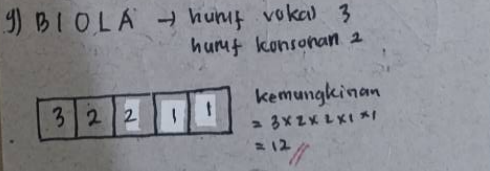 g) BIOLA → huruf vokal 3
huruf konsonan 2
3 2 2 1 1
kemungkinan
= 3 x 2 x 2 x 1 x 1
= 12 //